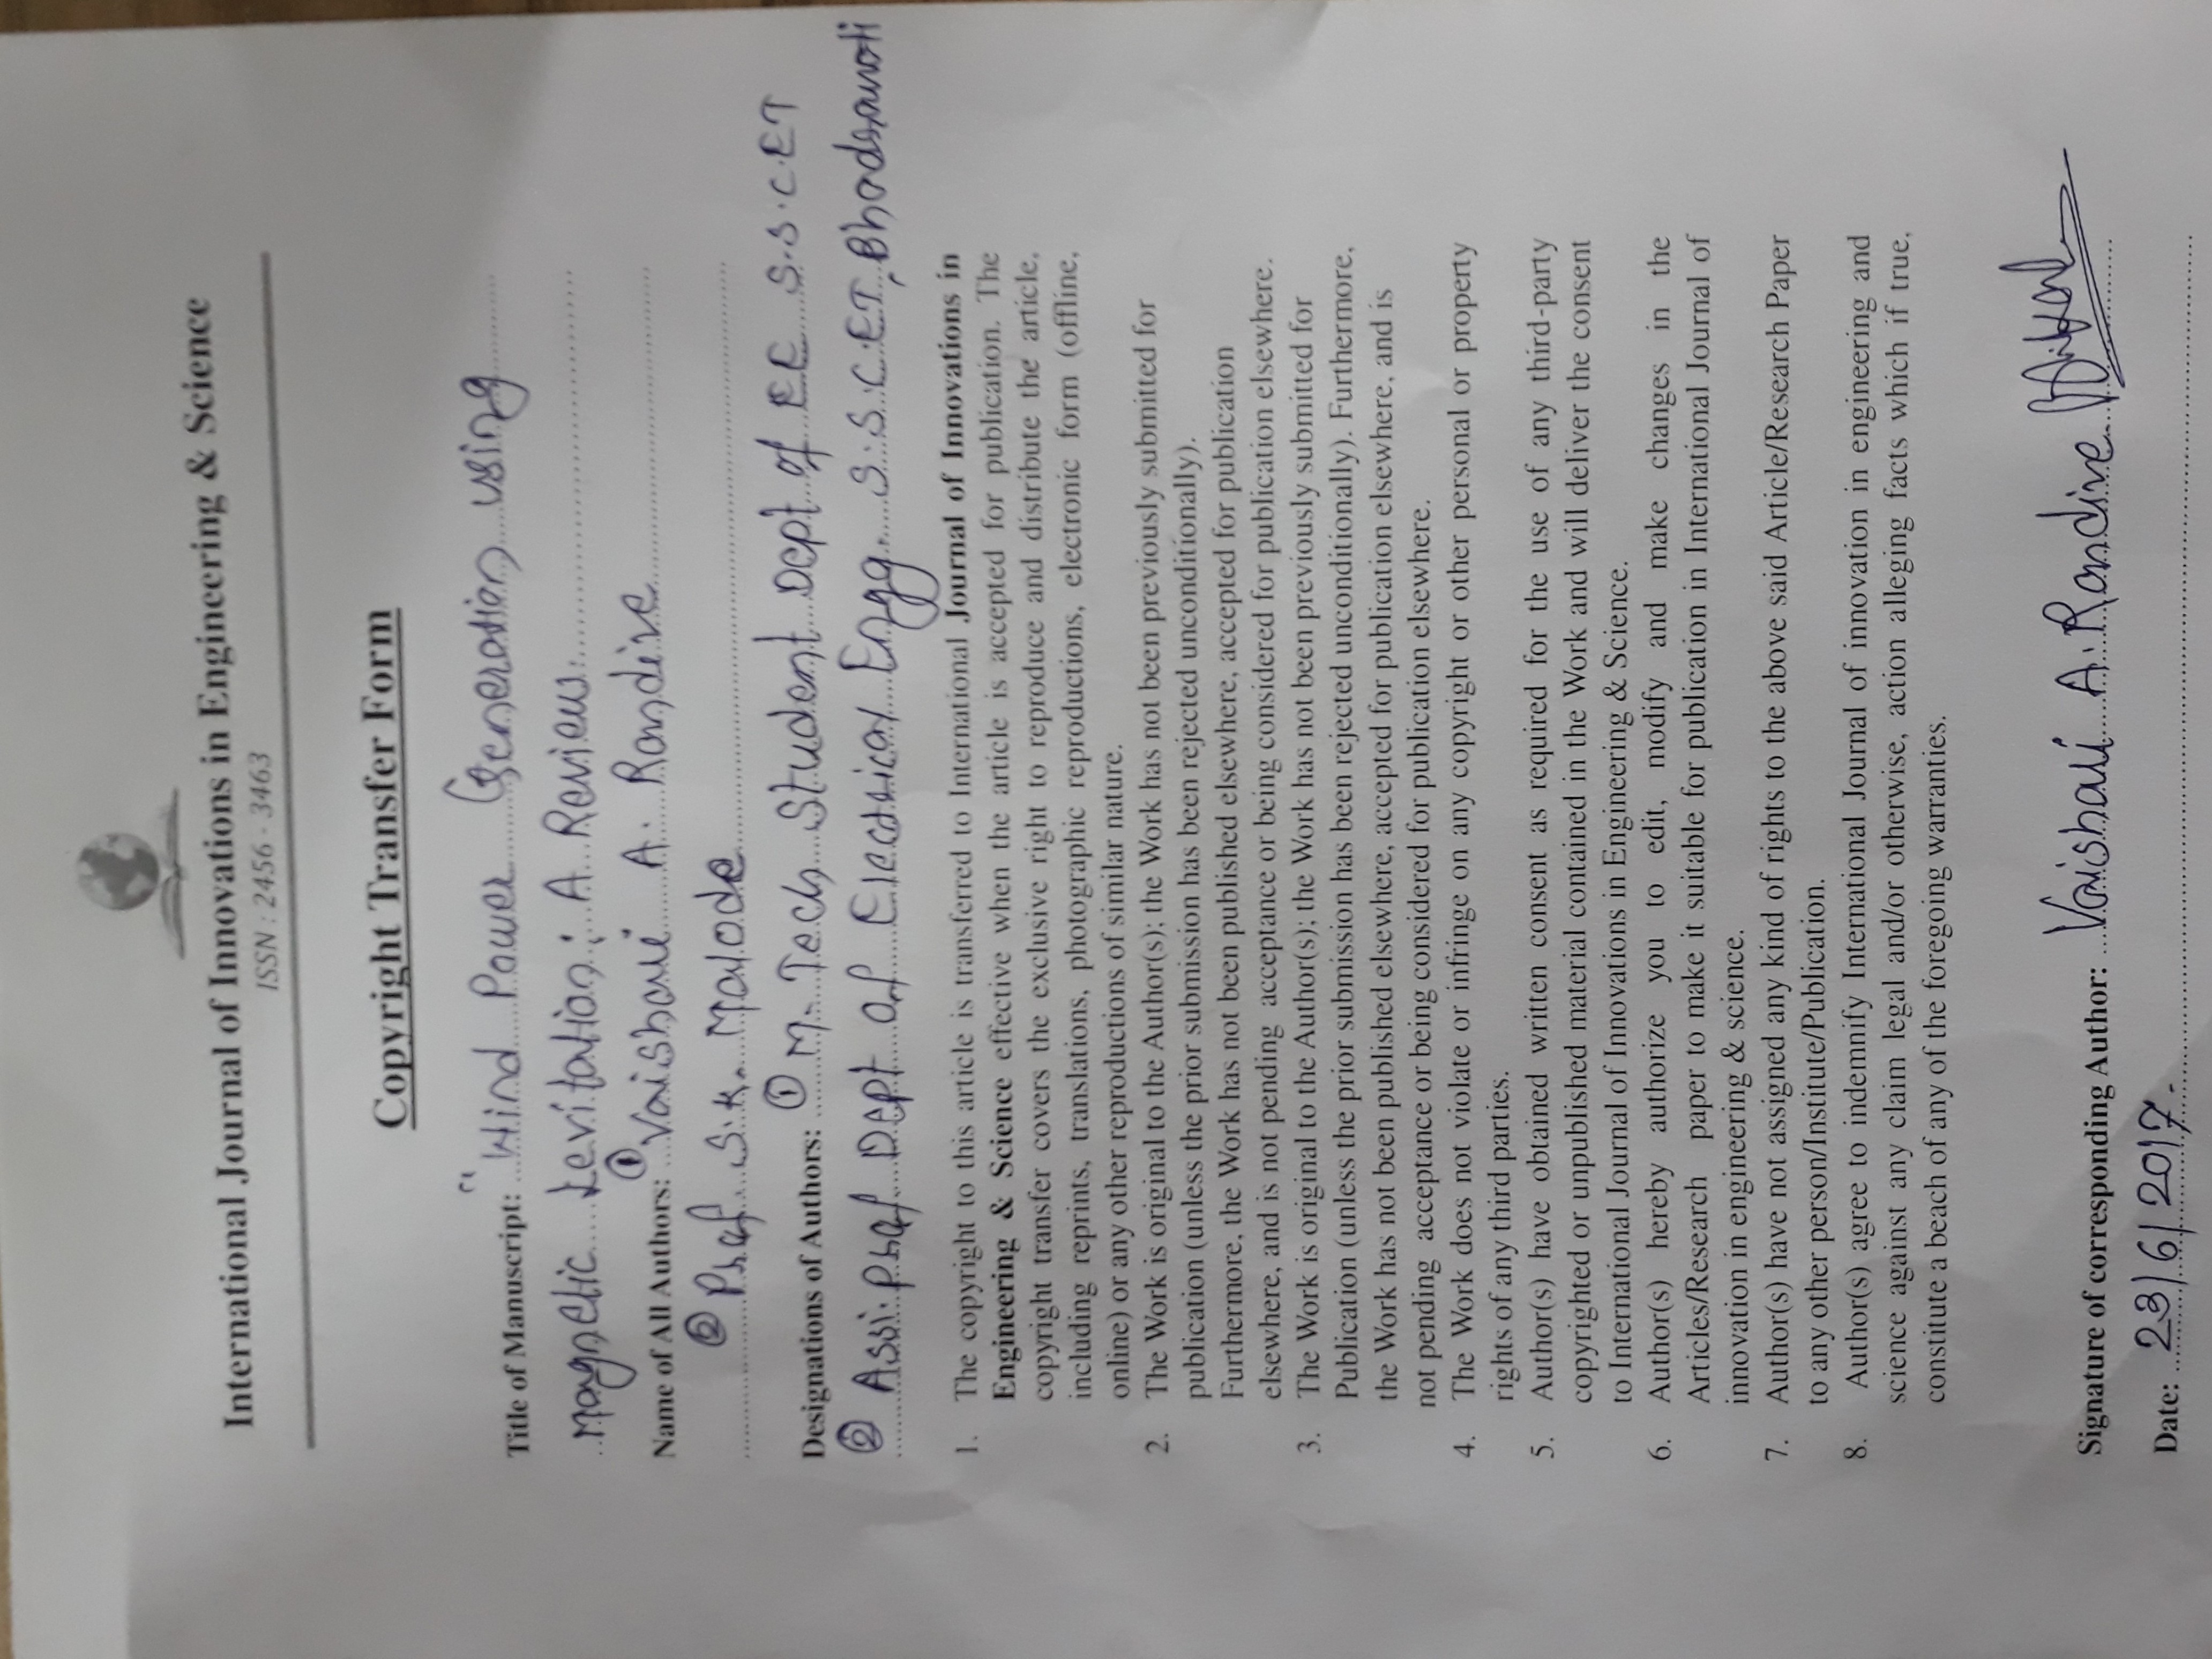 International Journal of Innovations in Engineering & Science
ISSN : 2456 - 3463
Copyright Transfer Form
Title of Manuscript: " Wind Power Generation using
Magnetic Levitation : A Review.
Name of All Authors: ① Vaishali A. Randive
② Prof. S.K. Malode
Designations of Authors: ① M. Tech Student Dept of EE S.S.C.ET
② Assi. Prof Dept of Electrical Engg. S.S.C.ET, Bhadrawati
1. The copyright to this article is transferred to International Journal of Innovations in
Engineering & Science effective when the article is accepted for publication. The
copyright transfer covers the exclusive right to reproduce and distribute the article,
including reprints, translations, photographic reproductions, electronic form (offline,
online) or any other reproductions of similar nature.
2. The Work is original to the Author(s); the Work has not been previously submitted for
publication (unless the prior submission has been rejected unconditionally).
Furthermore, the Work has not been published elsewhere, accepted for publication
elsewhere, and is not pending acceptance or being considered for publication elsewhere.
3. The Work is original to the Author(s); the Work has not been previously submitted for
Publication (unless the prior submission has been rejected unconditionally). Furthermore,
the Work has not been published elsewhere, accepted for publication elsewhere, and is
not pending acceptance or being considered for publication elsewhere.
4. The Work does not violate or infringe on any copyright or other personal or property
rights of any third parties.
5. Author(s) have obtained written consent as required for the use of any third-party
copyrighted or unpublished material contained in the Work and will deliver the consent
to International Journal of Innovations in Engineering & Science.
6. Author(s) hereby authorize you to edit, modify and make changes in the
Articles/Research paper to make it suitable for publication in International Journal of
innovation in engineering & science.
7. Author(s) have not assigned any kind of rights to the above said Article/Research Paper
to any other person/Institute/Publication.
8. Author(s) agree to indemnify International Journal of innovation in engineering and
science against any claim legal and/or otherwise, action alleging facts which if true,
constitute a beach of any of the foregoing warranties.
Signature of corresponding Author: Vaishali A. Randive
Date: 23/6/2017